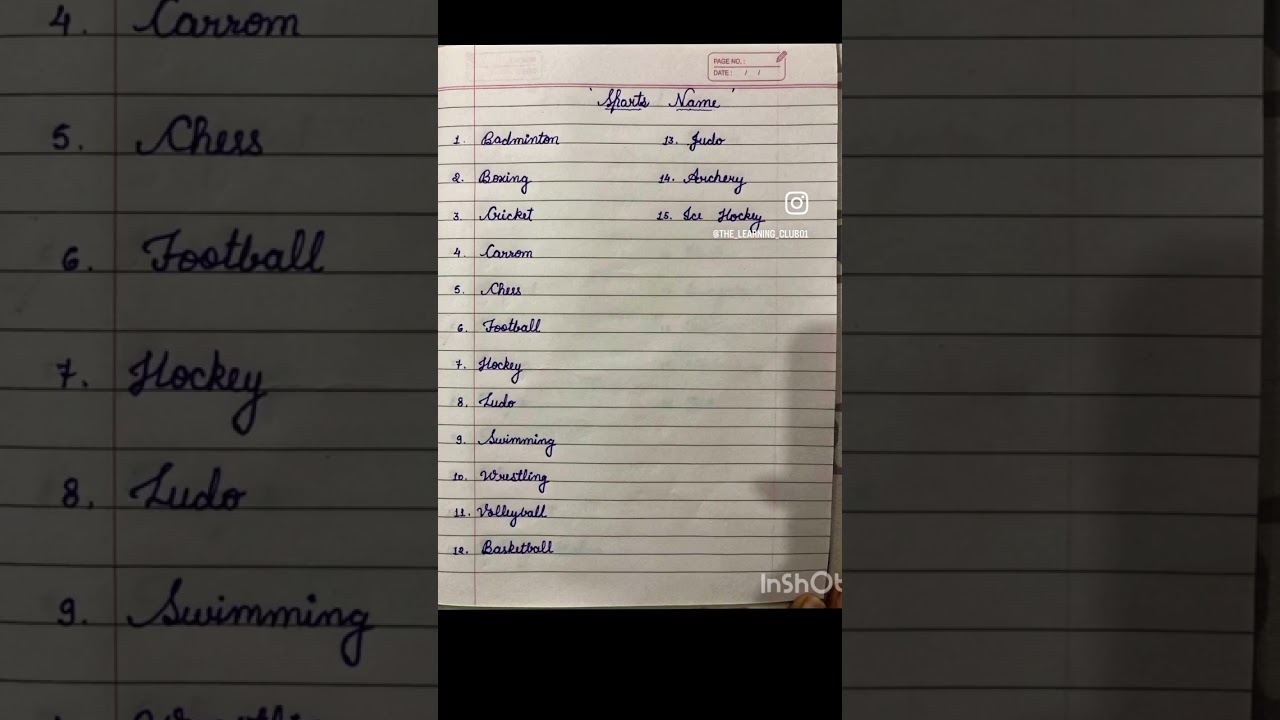 4. Carrom
5. Chess
6. Football
7. Hockey
8. Ludo
9. Swimming
PAGE NO. :
DATE : / /
'Sports Name'
1. Badminton
2. Boxing
3. Cricket
4. Carrom
5. Chess
6. Football
7. Hockey
8. Ludo
9. Swimming
10. Wrestling
11. Volleyball
12. Basketball
13. Judo
14. Archery
15. Ice Hockey
@THE_LEARNING_CLUB01
InShOt